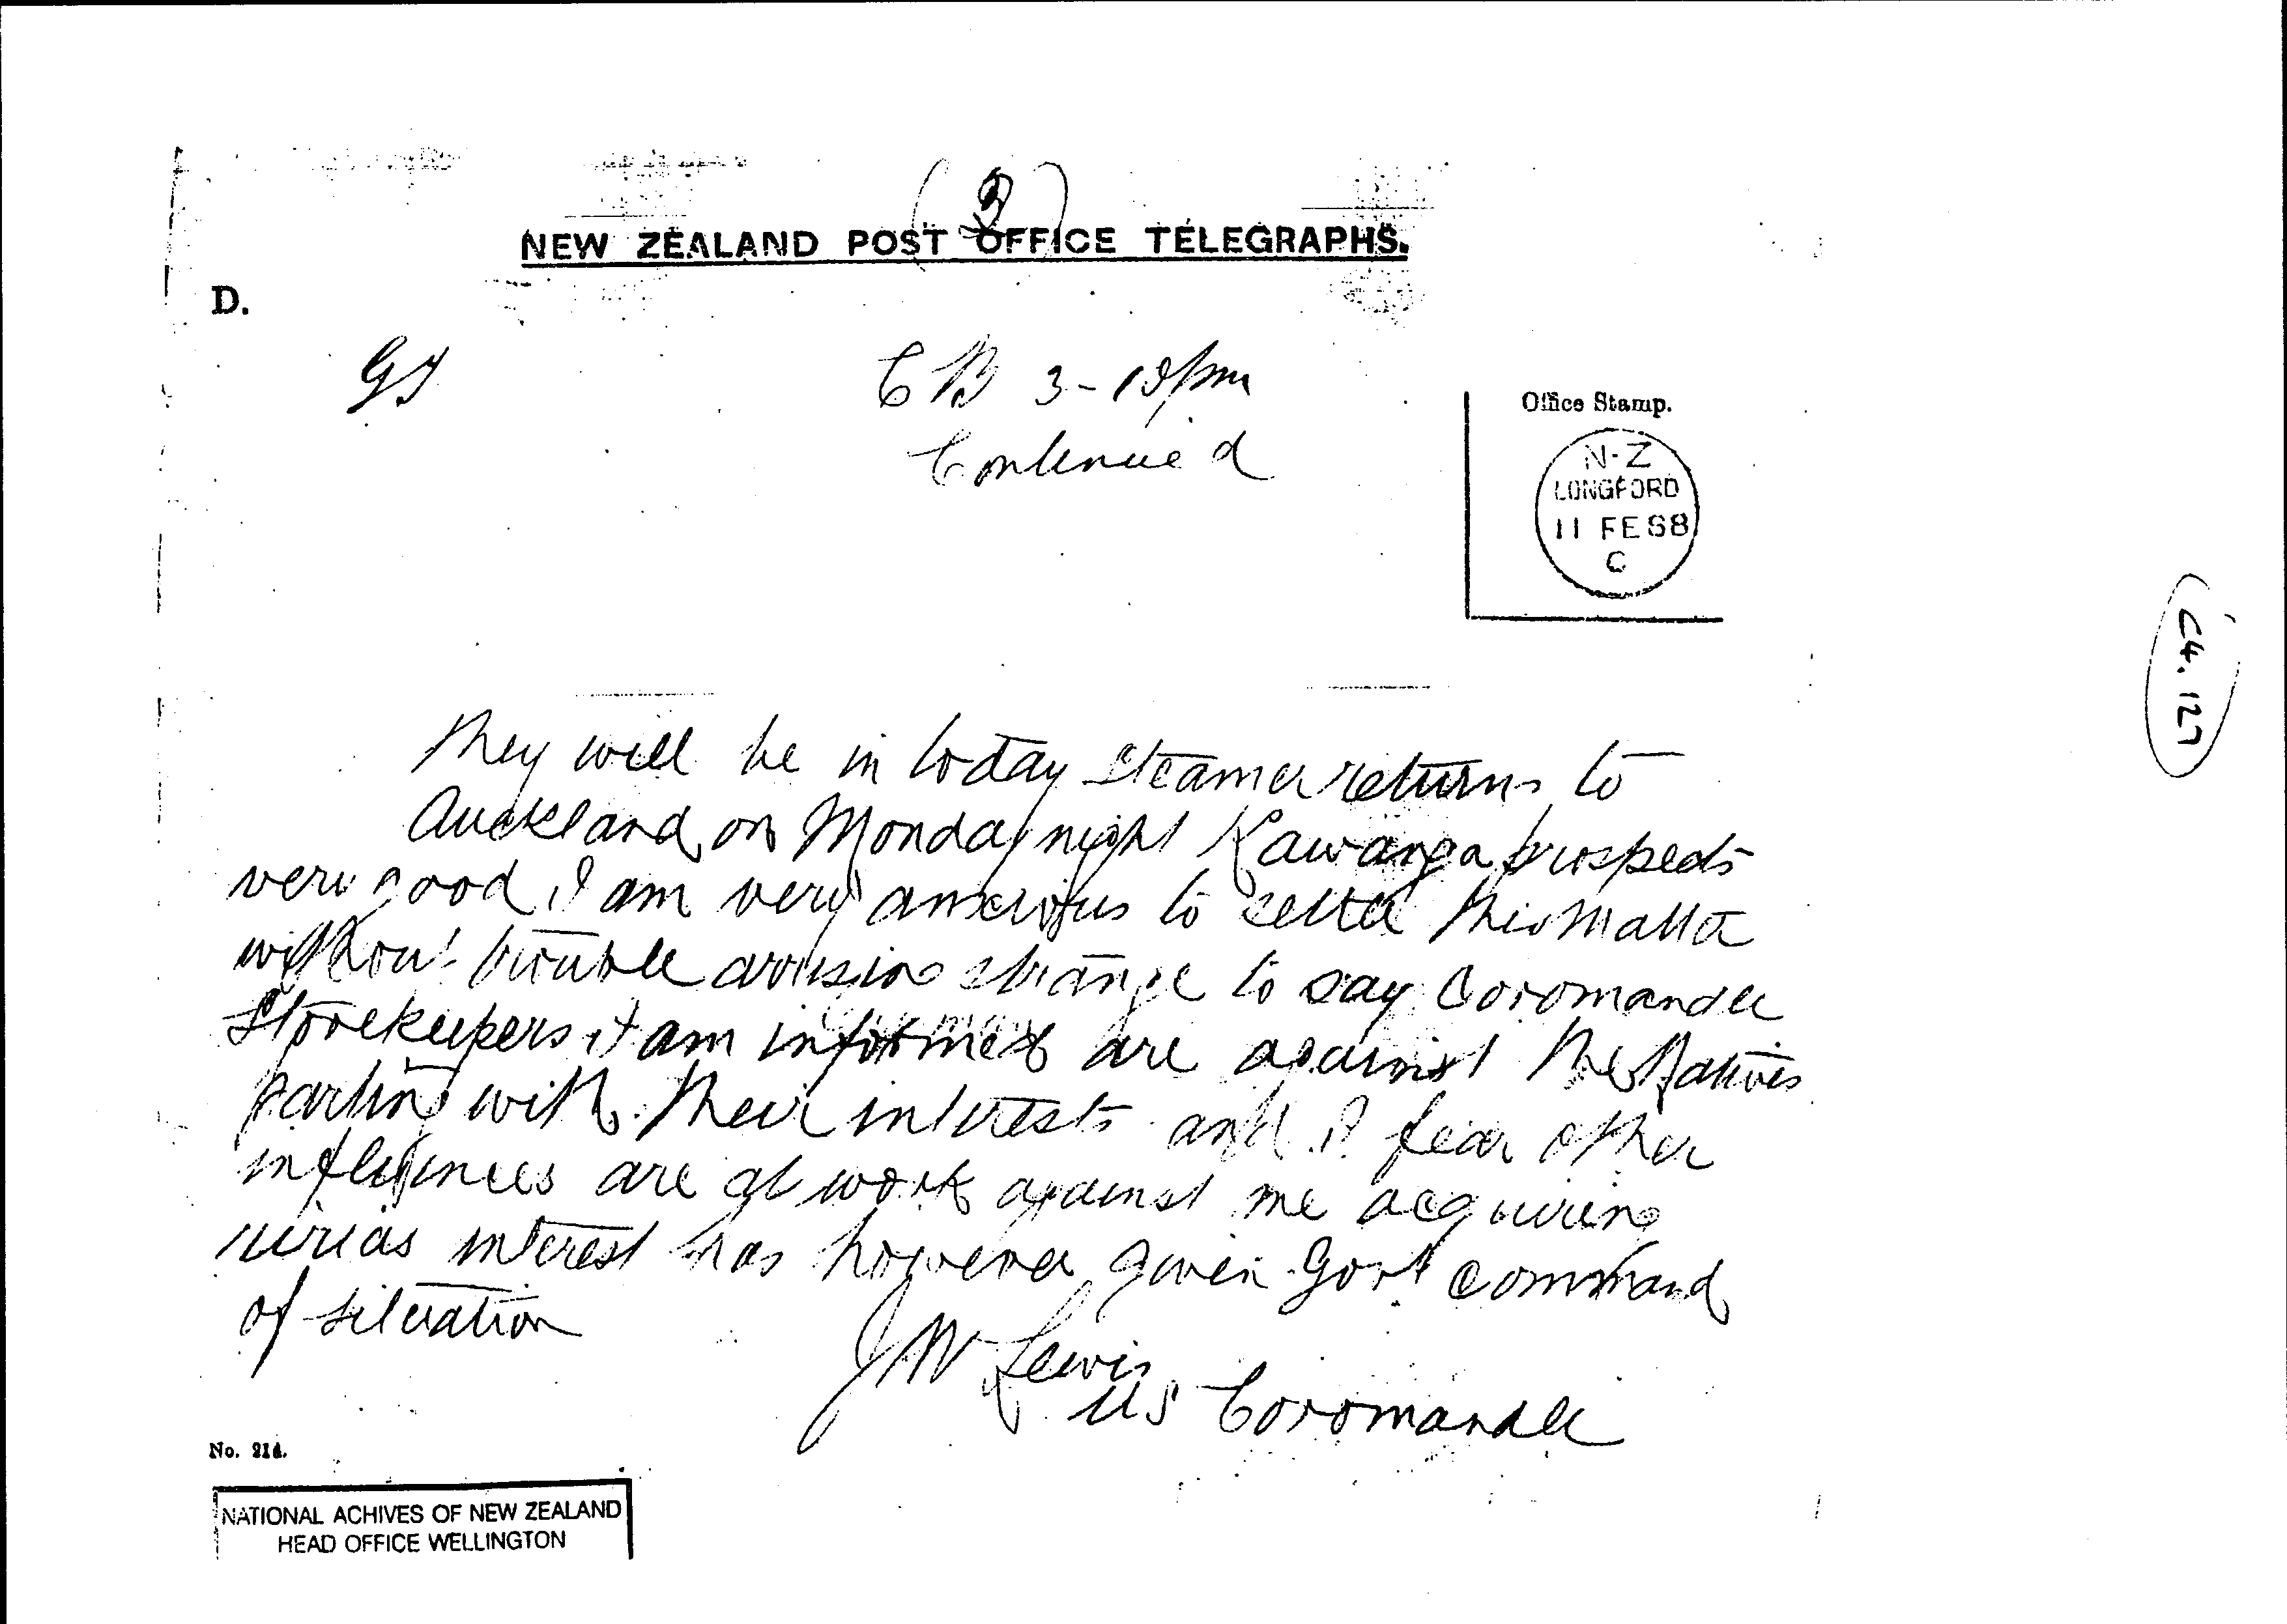 (3)
NEW ZEALAND POST OFFICE TELEGRAPHS.
D.
CB 3-10pm
Continued
Office Stamp.
N-Z
LONGFORD
11 FE 88
C
C4.127
They will be in today steamer returns to
Auckland on Monday night Kawanga prospects
very good I am very anxious to settle this matter
without trouble arising strange to say Coromandel
Storekeepers I am informed are against the Natives
parting with their interests and I fear other
influences are at work against me acquiring
interest has however given Govt command
of situation
JW Lewis
US Coromandel
No. 214.
NATIONAL ACHIVES OF NEW ZEALAND
HEAD OFFICE WELLINGTON